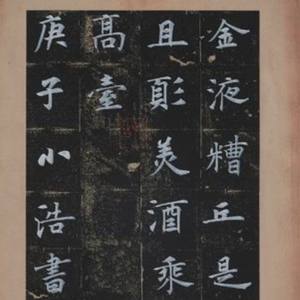 金液糟丘是
且須美酒乘
髙臺
庚子小浩書